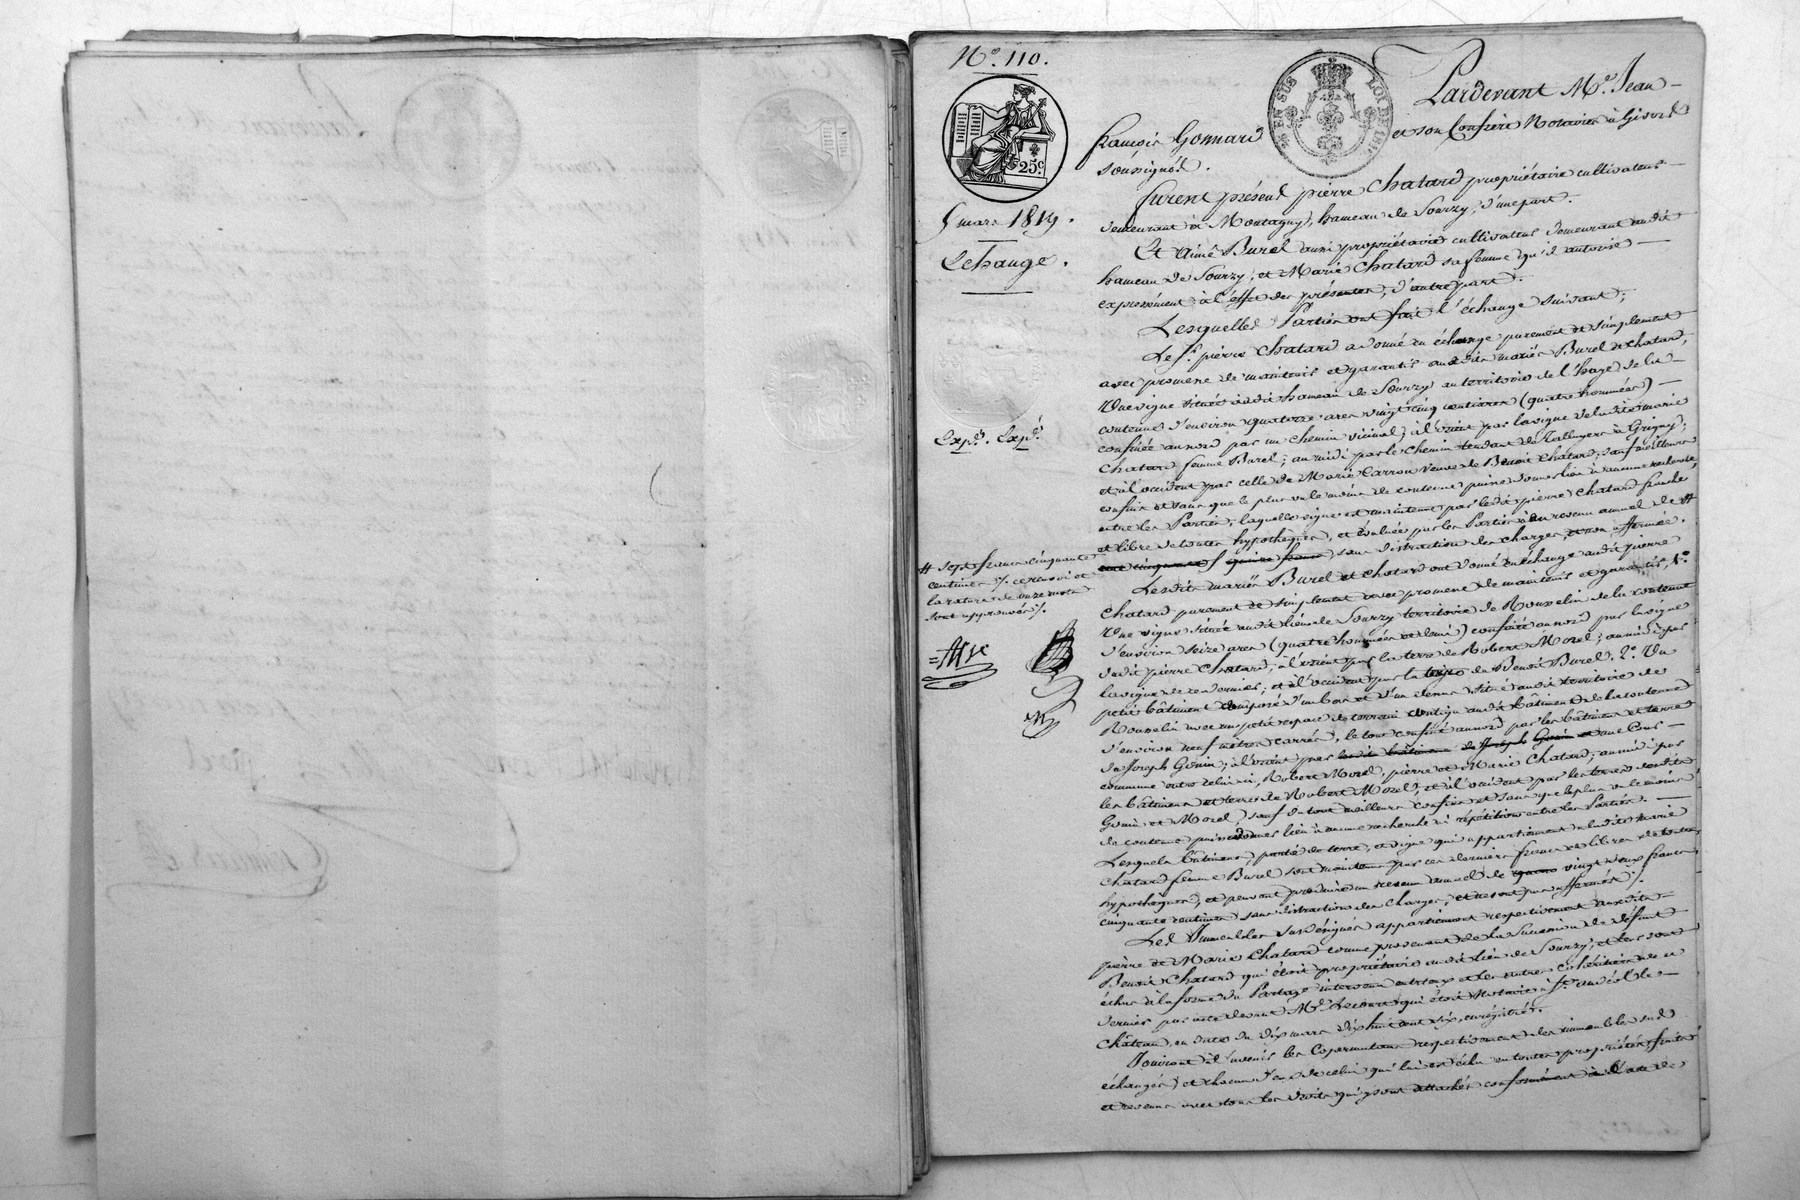 N.º 110.
EN SUS LOI DE 1816
25.c
5 mars 1819.
Echange.
Exp.é. Exp.é.
Pardevant M.e Jean-
françois Gonnard et son Confrère Notaires à Givors
soussignés.
furent présens pierre Chatard propriétaire cultivateur
demeurant à Montagny, hameau de Sourzy, d'une part.
Et Aimé Burel aussi propriétaire cultivateur demeurant audit
hameau de Sourzy, et Marie Chatard sa femme qu'il autorise
expressément à l'effet des présentes, d'autre part.
Lesquelles Parties ont fait l'échange suivant;
Le S.r pierre Chatard a donné en échange purement et simplement
avec promesse de maintenir et garantir auxdits mariés Burel et Chatard,
Une vigne située audit hameau de Sourzy au territoire de l'haye de la
contenue d'environ quatorze ares vingt cinq centiares (quatre hommées)
confinée au nord par un chemin vicinal; à l'orient par la vigne de ladite marie
Chatard femme Burel; au midi par le chemin tendant de Talluyers à Grigny;
et à l'occident par celle de Marie Carron veuve de Benoit Chatard; sauf meilleurs
confins et sans que le plus ou le moins de contenue puisse donner lieu à aucune recherche
entre les Parties; laquelle vigne est maintenue par ledit pierre Chatard franche
et libre de toutes hypothèques, et évaluée par les Parties à du revenu annuel de #
sans distraction des charges, et non affermée.
# sept francs cinquante
centimes ·/. ce renvoi et
la rature de onze mots
sont approuvés ·/.
Lesdits mariés Burel et Chatard ont donné en échange audit pierre
Chatard purement et simplement avec promesse de maintenir et garantir, 1.º
Une vigne située audit lieu de Sourzy territoire de Rouxelin de la contenue
d'environ seize ares (quatre hommées et demi) confinée au nord par la vigne
dudit pierre Chatard; à l'orient par la terre de Robert Morel; au midi par
la vigne de ce dernier; et à l'occident par la vigne de Benoit Burel. 2.º Un
petit bâtiment composé d'un bas et d'un dessus situé audit territoire de
Rouxelin avec un petit espace de terrein contigu audit bâtiment de la contenue
d'environ neuf mètres carrés, le tout confiné au nord par les bâtimens et terre
de Joseph Gonin; à l'orient par ledit bâtiment de Joseph Gonin et une Cour
commune entre celui-ci, Robert Morel, pierre et Marie Chatard; au midi par
les bâtimens et terre de Robert Morel; et à l'occident par les terres desdits
Gonin et Morel, sauf du tout meilleurs confins et sans que le plus ou le moins
de contenue puisse donner lieu à aucune recherche ni répétition entre les Parties.
Lesquels bâtiment, partie de terre, et vigne qui appartiennent à ladite Marie
Chatard femme Burel sont maintenus par ces derniers francs et libres de toutes
hypothèques, et peuvent produire un revenu annuel de vingt deux francs
cinquante centimes sans distraction des charges, et ne sont pas affermés ·/.
Les Immeubles susdésignés appartiennent respectivement auxdits
pierre et Marie Chatard comme provenant de la Succession de défunt
Benoit Chatard qui étoit propriétaire audit lieu de Sourzy, et leur sont
échus à la forme du Partage intervenu entr'eux et les autres Cohéritiers de ce
dernier par acte devant M.e qui étoit Notaire à S.t andéol le
Château, en date du dix mars dix huit cent six, enregistré.
Jouiront à l'avenir les Copermutans respectivement des immeubles sus
échangés et chacun d'eux de celui qui lui est échu en toutes propriétés, fruits
et revenus avec tous les droits qui y sont attachés conformément à l'acte de